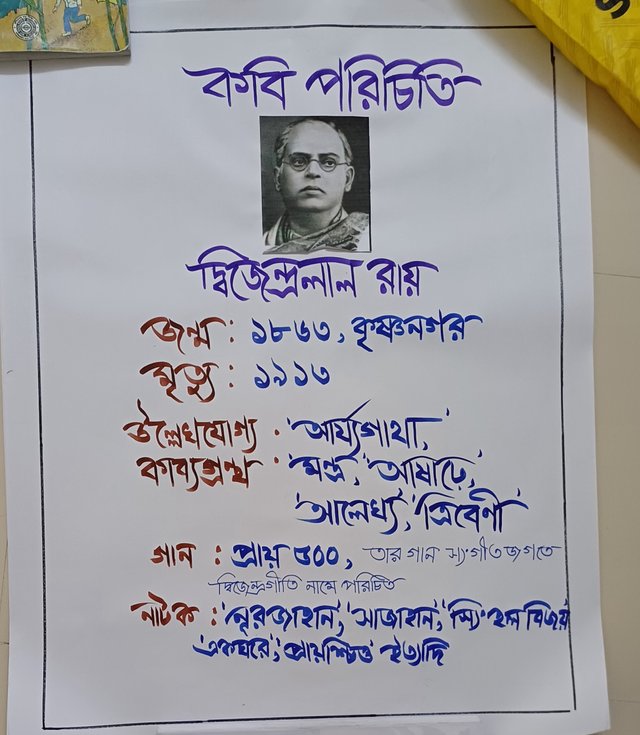 কবি পরিচিতি
দ্বিজেন্দ্রলাল রায়
জন্ম : ১৮৬৩, কৃষ্ণনগর
মৃত্যু : ১৯১৩
উল্লেখযোগ্য : 'আর্য্যগাথা,'
কাব্যগ্রন্থ 'মন্দ্র,' 'আষাঢ়ে,'
'আলেখ্য,' 'ত্রিবেণী'
গান : প্রায় ৫০০, তার গান সংগীত জগতে
দ্বিজেন্দ্রগীতি নামে পরিচিত
নাটক : 'নূরজাহান', 'সাজাহান', 'সিংহল বিজয়'
'একঘরে', 'প্রায়শ্চিত্ত' ইত্যাদি